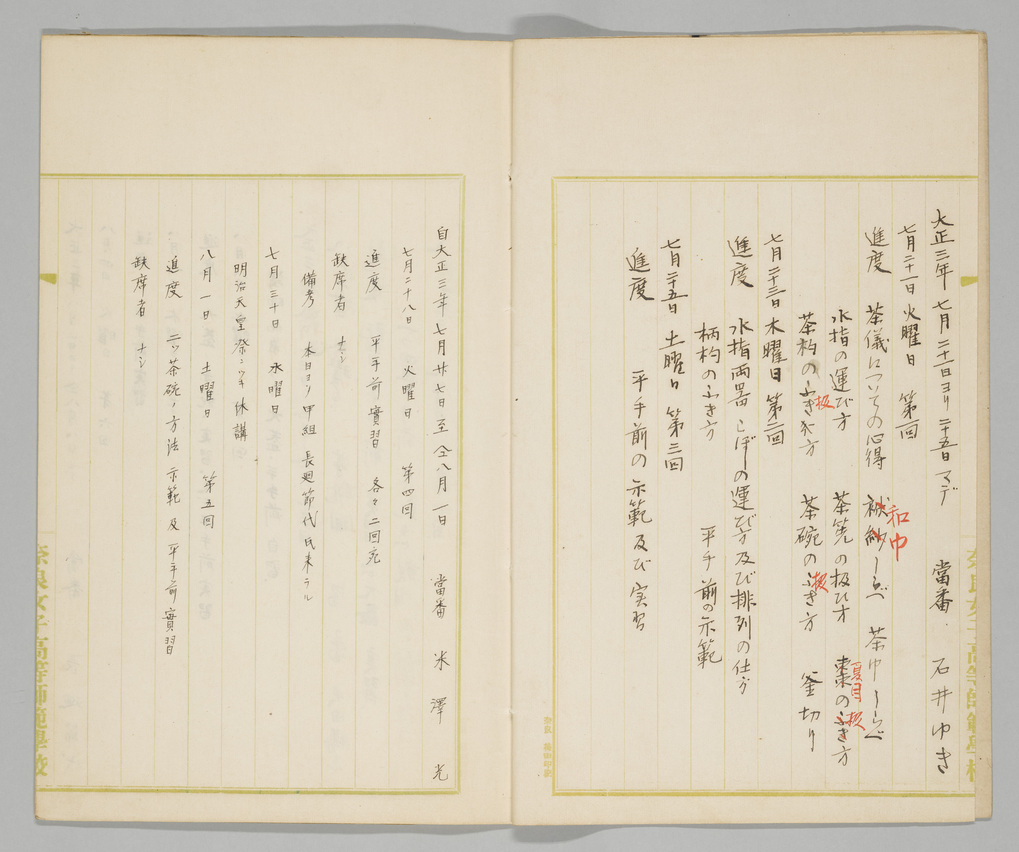 大正三年 七月二十一日ヨリ二十五日マデ 當番 石井ゆき
七月二十一日 火曜日 第一回
和巾
進度 茶儀についての心得 袱紗しらべ 茶巾しらべ
水指の運び方 茶筅の扱ひ方 棗のふき方
夏目 扱
茶杓のふき方 茶碗のふき方 釜切り
扱 扱
七月二十三日 木曜日 第二回
進度 水指両器こぼしの運び方及び排列の仕方
柄杓のふき方 平手前の示範
七月二十五日 土曜日 第三回
進度 平手前の示範及び実習
奈良女子高等師範學校
自大正三年七月廿七日至仝八月一日 當番 米澤光
七月二十八日 火曜日 第四回
進度 平手前實習 各々二回宛
缺席者 ナシ
備考 本日ヨリ甲組長廻節代氏来ラル
七月三十日 木曜日
明治天皇祭ニツキ休講
八月一日 土曜日 第五回
進度 二ツ茶碗ノ方法示範及平手前實習
缺席者 ナシ
奈良女子高等師範學校